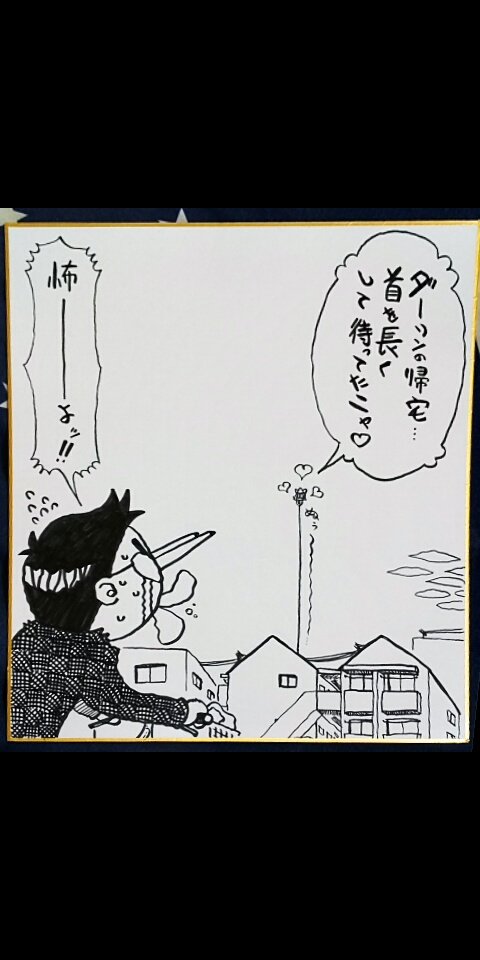 ダーリンの帰宅…
首を長く
して待ってたニャ♡
ぬぅ〜
怖———よッ!!